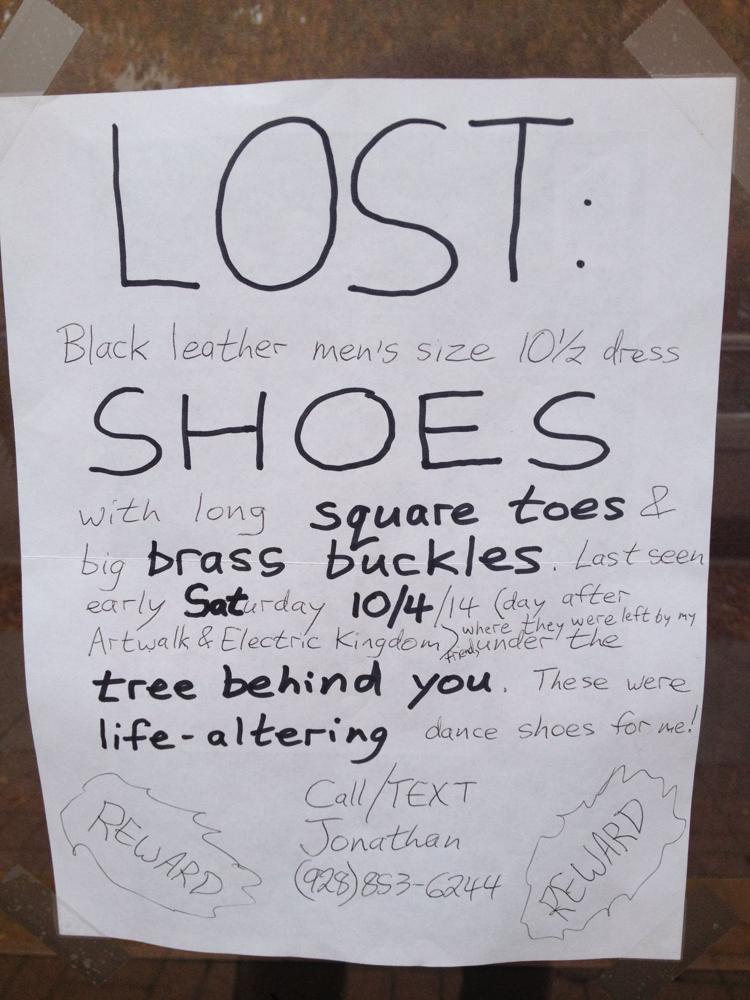 LOST:
Black leather men's size 10½ dress
SHOES
with long square toes &
big brass buckles. Last seen
early Saturday 10/4/14 (day after
Artwalk & Electric Kingdom) where they were left by my friends under the
tree behind you. These were
life-altering dance shoes for me!
Call/TEXT
Jonathan
(928)853-6244
REWARD
REWARD